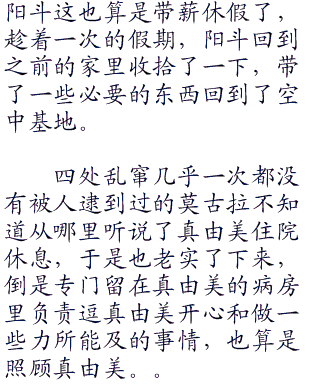 阳斗这也算是带薪休假了，
趁着一次的假期，阳斗回到
之前的家里收拾了一下，带
了一些必要的东西回到了空
中基地。
四处乱窜几乎一次都没
有被人逮到过的莫古拉不知
道从哪里听说了真由美住院
休息，于是也老实了下来，
倒是专门留在真由美的病房
里负责逗真由美开心和做一
些力所能及的事情，也算是
照顾真由美。。